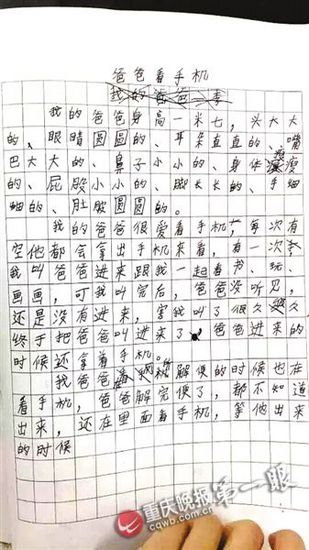 爸爸看手机
我的爸爸一事
我的爸爸身高一米七,头大大
的、眼睛圆圆的、耳朵直直的、嘴
巴大大的、鼻子小小的、身体瘦瘦
的、屁股小小的、脚长长的、手细
细的、肚脸圆圆的。
我的爸爸很爱看手机,每次有
空他都会拿出手机来看,有一次
我叫爸爸进来跟我一起看书、玩、
画画,可我叫完后,爸爸没听见,
还是没有进来,害我叫了很久
终于把爸爸叫进来了,爸爸进来的
时候还拿着手机。
我爸爸解便的时候也在
看手机,爸爸解完便了,都不知道
出来,还在里面看手机,等他出来
的时候
重庆晚报 第一眼
cqwb.com.cn